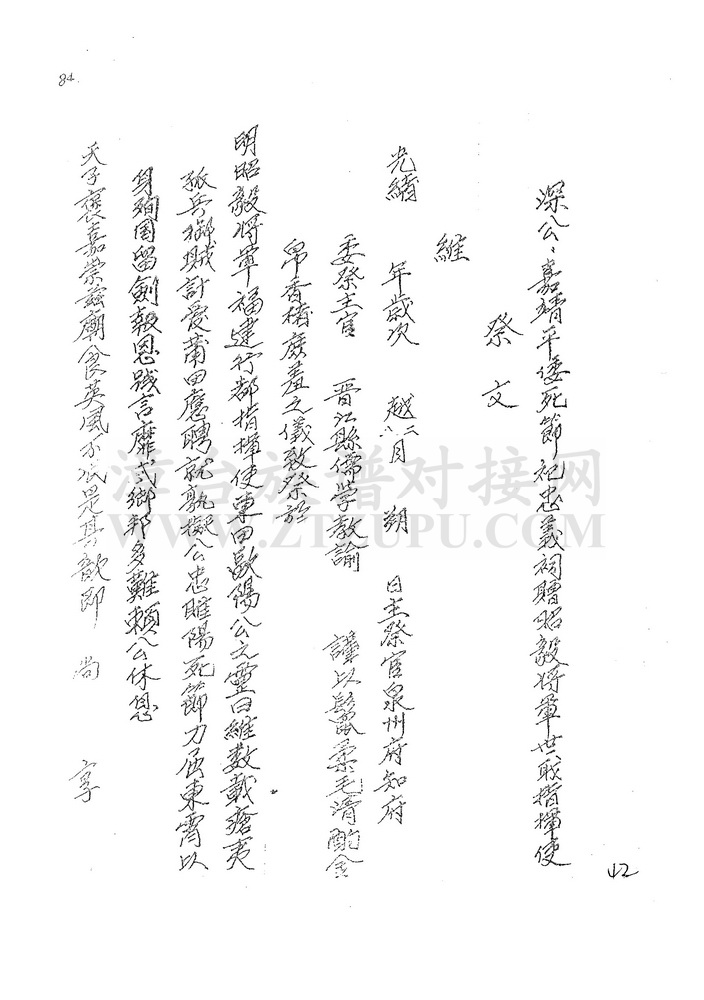 84
42
深公：嘉靖平倭死節祀忠義祠贈昭毅將軍世職指揮使
祭文
維
光緒 年歲次 越二八月 朔 日主祭官泉州府知府
委祭主官 晋江縣儒學教諭 謹以鬣豪毛清酌金
帛香楮庶羞之儀致祭於
明昭毅將軍福建行都指揮使東田歐陽公之靈曰維数載瘡夷
孤兵禦賊計受莆田應聘就孰擬公忠睢陽死節力屈東霄以
身殉国留劍報恩践言靡忒鄉邦多難賴公休息
天子褒嘉崇茲廟食英風不泯是其歆即 尚 享
漳台族谱对接网
WWW.ZTZUPU.COM